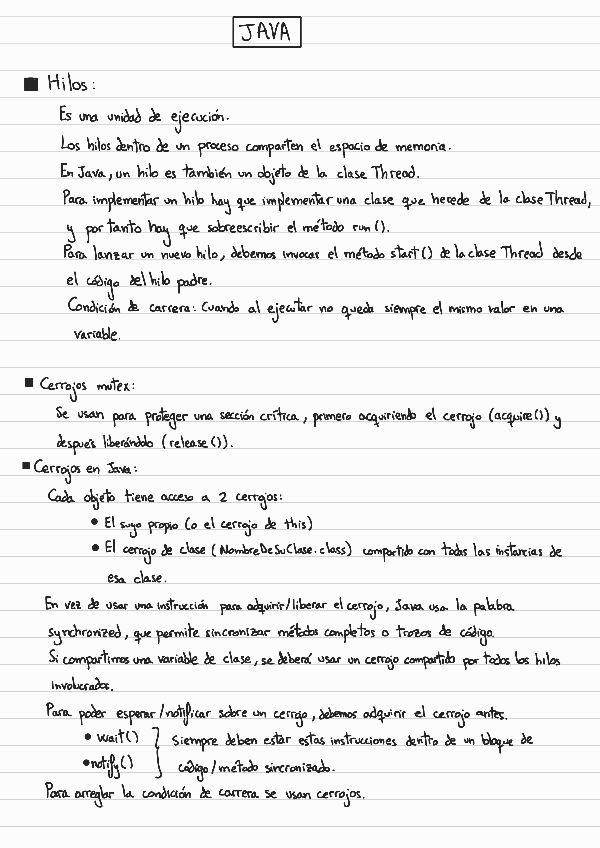 JAVA
Hilos:
Es una unidad de ejecución.
Los hilos dentro de un proceso comparten el espacio de memoria.
En Java, un hilo es también un objeto de la clase Thread.
Para implementar un hilo hay que implementar una clase que herede de la clase Thread,
y por tanto hay que sobreescribir el método run().
Para lanzar un nuevo hilo, debemos invocar el método start() de la clase Thread desde
el código del hilo padre.
Condición de carrera: Cuando al ejecutar no queda siempre el mismo valor en una
variable.
Cerrojos mutex:
Se usan para proteger una sección crítica, primero acquiriendo el cerrojo (acquire()) y
después liberándolo (release()).
Cerrojos en Java:
Cada objeto tiene acceso a 2 cerrojos:
• El suyo propio (o el cerrojo de this)
• El cerrojo de clase (NombreDeSuClase.class) compartido con todas las instancias de
esa clase.
En vez de usar una instrucción para adquirir/liberar el cerrojo, Java usa la palabra
synchronized, que permite sincronizar métodos completos o trozos de código.
Si compartimos una variable de clase, se deberá usar un cerrojo compartido por todos los hilos
involucrados.
Para poder esperar/notificar sobre un cerrojo, debemos adquirir el cerrojo antes.
• wait() } Siempre deben estar estas instrucciones dentro de un bloque de
• notify() código/método sincronizado.
Para arreglar la condición de carrera se usan cerrojos.